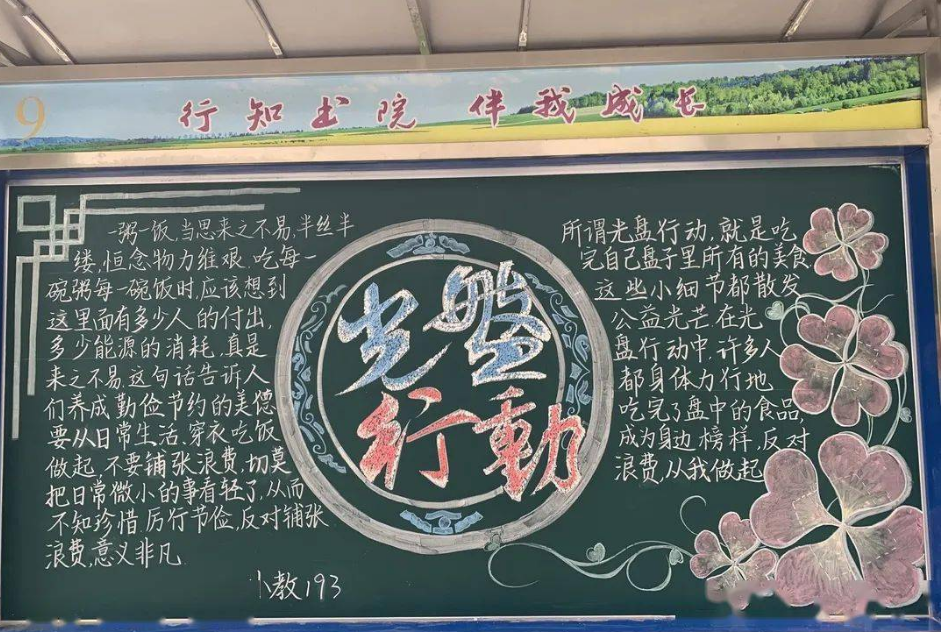 9
行知书院 伴我成长
一粥一饭,当思来之不易,半丝半
缕,恒念物力维艰.吃每一
碗粥每一碗饭时,应该想到
这里面有多少人的付出,
多少能源的消耗,真是
来之不易.这句话告诉人
们养成勤俭节约的美德
要从日常生活.穿衣吃饭
做起,不要铺张浪费,切莫
把日常微小的事看轻了,从而
不知珍惜.厉行节俭,反对铺张
浪费,意义非凡.
小教193
光盤
行動
所谓光盘行动,就是吃
完自己盘子里所有的美食
这些小细节都散发
公益光芒,在光
盘行动中,许多人
都身体力行地
吃完了盘中的食品,
成为身边榜样,反对
浪费,从我做起